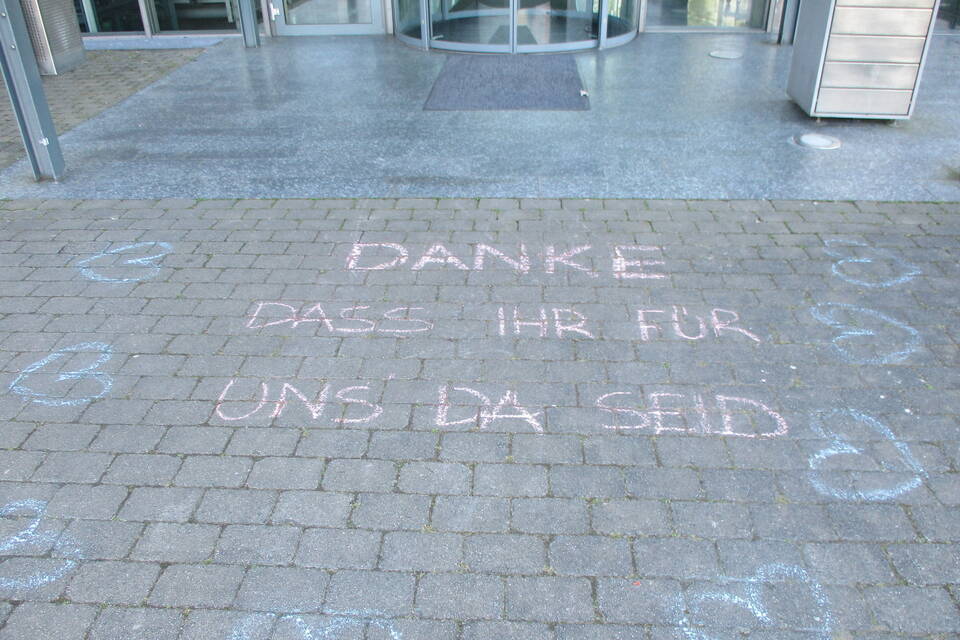 DANKE
DASS IHR FÜR
UNS DA SEID